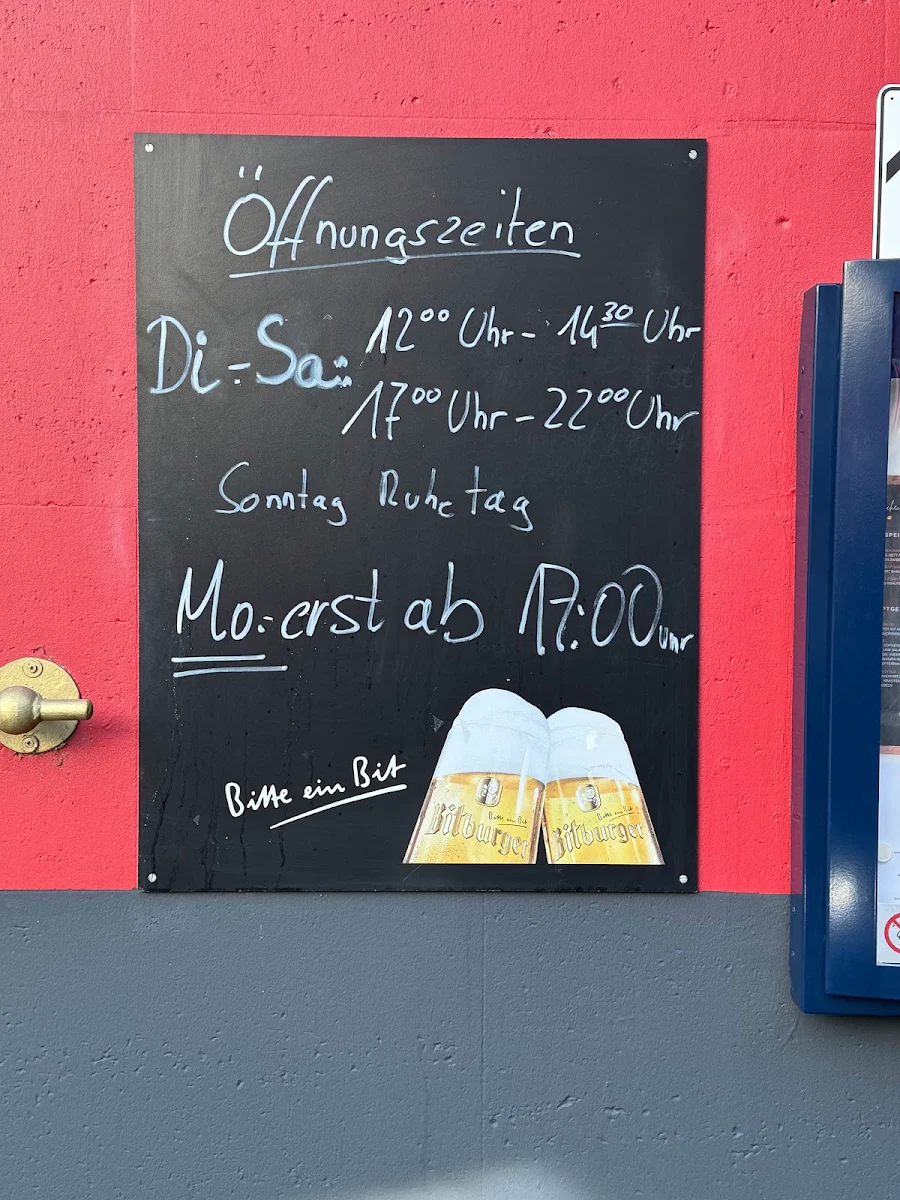 Öffnungszeiten
Di-Sa: 12⁰⁰ Uhr - 14³⁰ Uhr
17⁰⁰ Uhr - 22⁰⁰ Uhr
Sonntag Ruhetag
Mo: erst ab 17:00 uhr
Bitte ein Bit
Bitte ein Bit
Bitburger
Bitte ein Bit
Bitburger